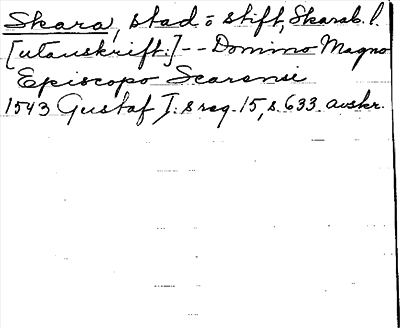 Skara, stad o stift, Skarab. l.
[utanskrift:] -- Domino Magno
Episcopo Scarensi
1543 Gustaf I:s reg. 15, s. 633. avskr.